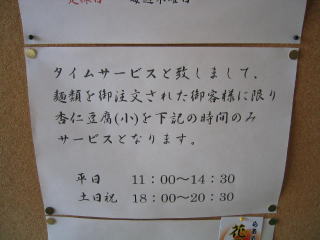 定休日　　毎週水曜日
タイムサービスと致しまして、
麺類を御注文された御客様に限り
杏仁豆腐(小)を下記の時間のみ
サービスとなります。
平日　　11：00～14：30
土日祝　18：00～20：30